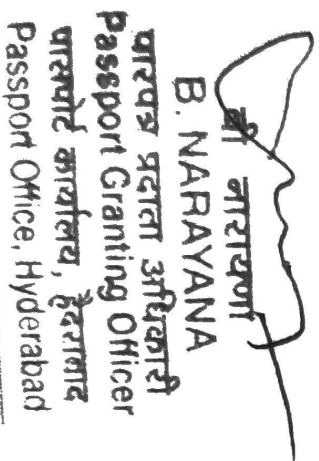 बी नारायणा
B. NARAYANA
पारपत्र प्रदाता अधिकारी
Passport Granting Officer
पासपोर्ट कार्यालय, हैदराबाद
Passport Office, Hyderabad